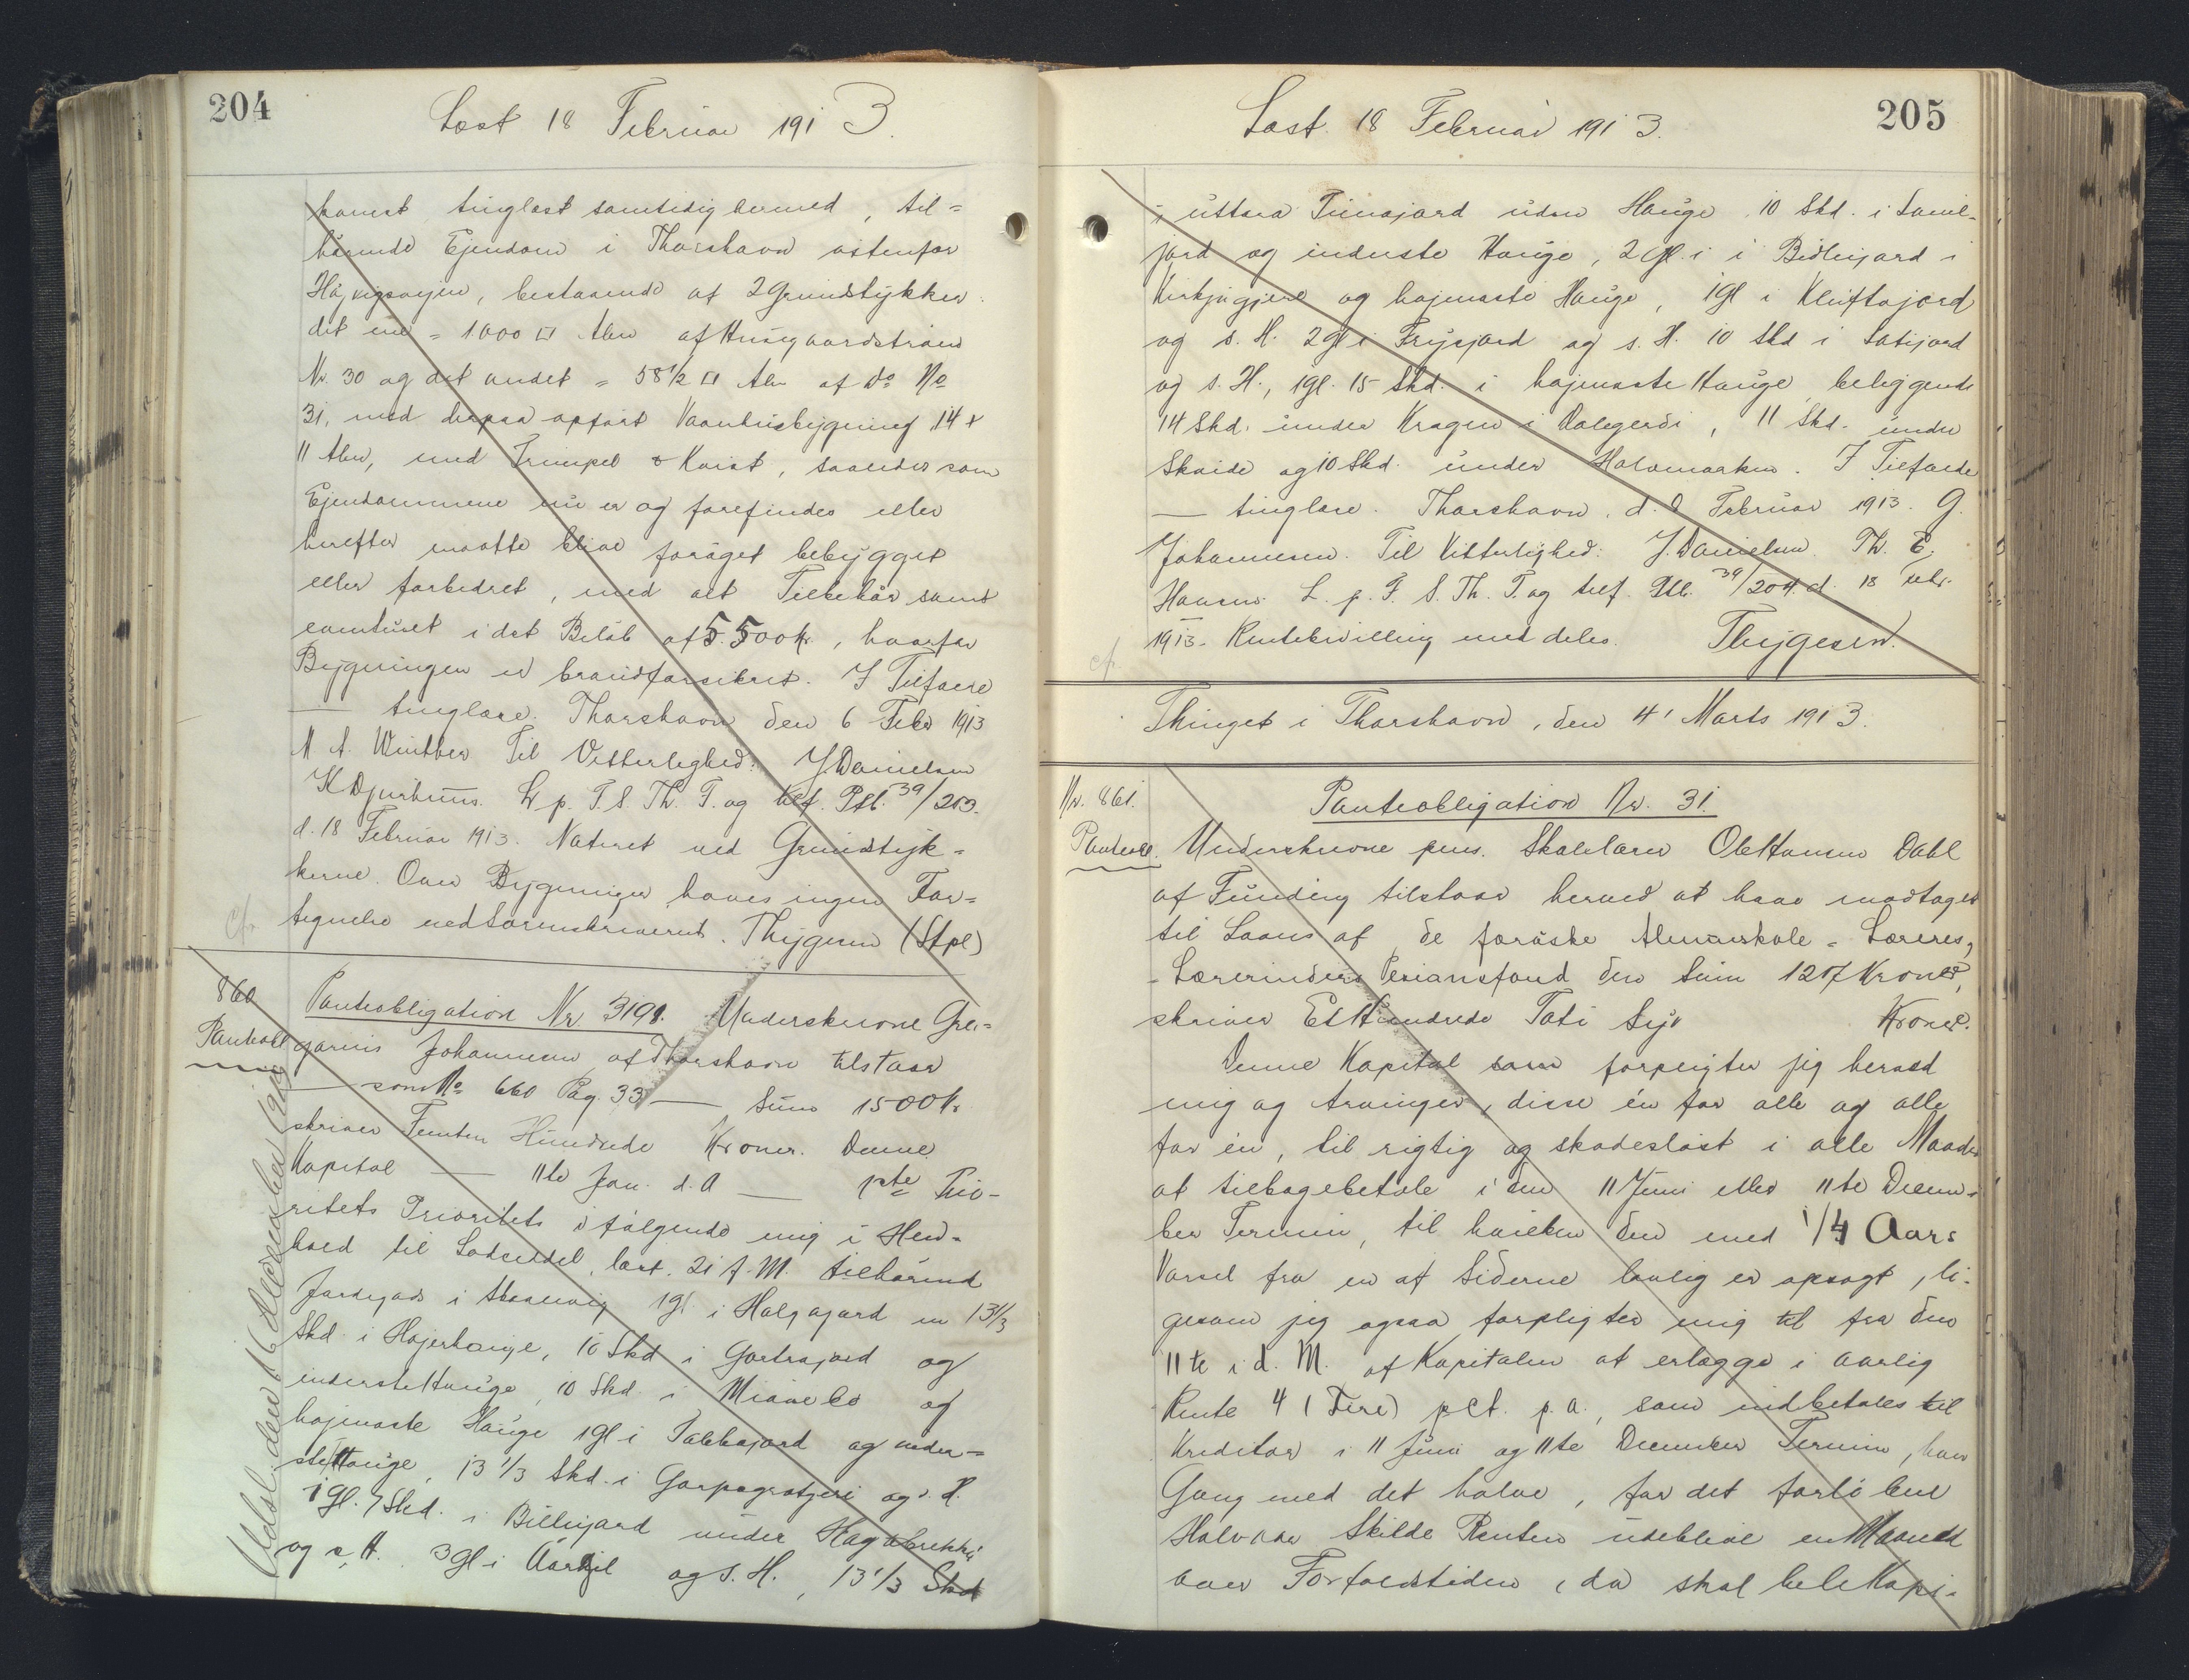 204
Læst 18 Februar 1913.
komst tinglæst samtidig hermed, til=
hørende Ejendom i Thorshavn østenfor
Højvigsvejen, bestaaende af 2 Grundstykker
det ene = 1000 □ Alen af Husegaardstræde
Nr. 30 og det andet = 58½ □ Alen af do No
31, med derpaa opført Vaanhusbygning 14 x
11 Alen, med Frempel & Kvist, saaledes som
Ejendommene nu er og forefindes eller
herefter maatte blive forøget bebygget
eller forbedret, med alt Tilbehør samt
eventuelt i det Beløb af 5.500 Kr, hvorfor
Bygningen er brandforsikret. I Tilfælde
— tinglæse. Thorshavn den 6 Febr 1913
M A Winther Til Vitterlighed: J. Danielsen
K Djurhuus. L. p. F. S. Th. T. og Ref. Ptl. 39/203.
d. 18 Februar 1913. Noteret ved Grundstyk=
kerne. Over Bygninger haves ingen For=
tegnelse ved Sorenskriveriet. Thygesen (Stpl)
cfr
860
Panteobl
Panteobligation Nr. 3198. Underskrevne Gre=
gorius Johannesen af Thorshavn tilstaar
— som No 660 Pag. 33 — Sum 1500 Kr
skriver Femten Hundrede Kroner. Denne
Kapital — 11te Jan. d. A — 1ste Prio-
ritets Prioritets i følgende mig i Hen-
hold til Lodseddel, læst 21 f. M. tilhørende
Jordegods i Skaalevig 1 gl i Halgajord en 13⅓
Skd i Højerhauge, 10 Skd i Gortrajord og
inderste Hauge, 10 Skd. i Miavele og
højeneste Hauge 1 gl i Takkajord og neder=
ste Hauge, 13⅓ Skd. i Garpagrotgeri og s. H.
1 gl. 7 Skd. i Billujord under Hagabrekku
og s. H. 3 gl i Aargil og s. H., 13⅓ Skd
Udsl. den 16 December 1913
205
Læst 18 Februar 1913.
i uttara Tunajord uden Hauge 10 Skd. i Lamb-
jord og inderste Hauge, 2 gl i i Bidlujord i
Kirkjugjere og højeneste Hauge, 1 gl i Kluftajord
og s. H. 2 gl i Frujsjord og s. H. 10 Skd i Satijord
og s. H., 1 gl. 15 Skd. i højeneste Hauge beliggende
14 Skd. under Kragen i Dalegerdi, 11 Skd. under
Skeide og 10 Skd. under Halvmarken. I Tilfælde
— tinglæse. Thorshavn, d. 8 Februar 1913. G.
Johannesen. Til Vitterlighed: J. Danielsen. Th. E.
Hansen. L. p. F. S. Th. T. og Ref. Ptl. 39/204. d. 18 Febr.
1913. Rentebevilling meddeles. Thygesen.
cfr.
Thinget i Thorshavn, den 4' Marts 1913.
Nr. 861.
Panteobl.
Panteobligation Nr. 31.
Underskrevne pens. Skolelærer Ole Hansen Dahl
af Funding tilstaar herved at have modtaget
til Laans af de færøske Almueskole-Læreres,
-Lærerinders Pensionsfond den Sum 1207 Kroner,
skriver Et Hundrede Toti Syv Kroner.
Denne Kapital som forpligter jeg herved
mig og Arvinger, disse én for alle og alle
for én, til rigtig og skadesløst i alle Maader
at tilbagebetale i den 11 Juni eller 11te Decem-
ber Termin, til hvilken den med ¼ Aars
Varsel fra en af Siderne lovlig er opsagt, li-
gesom jeg ogsaa forpligter mig til fra den
11te i d. M. af Kapitalen at erlægge i aarlig
Rente 4 (Fire) pCt. p. a., som indbetales til
Kreditor i 11 Juni og 11te December Termin, hver
Gang med det halve, for det forløbne
Halvaar. Skilde Renten udeblive en Maaned
over Forfaldstiden, da skal hele Kapi-